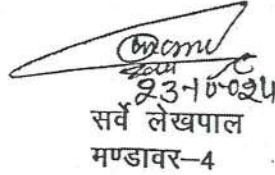 23-10-024
सर्वे लेखपाल
मण्डावर–4